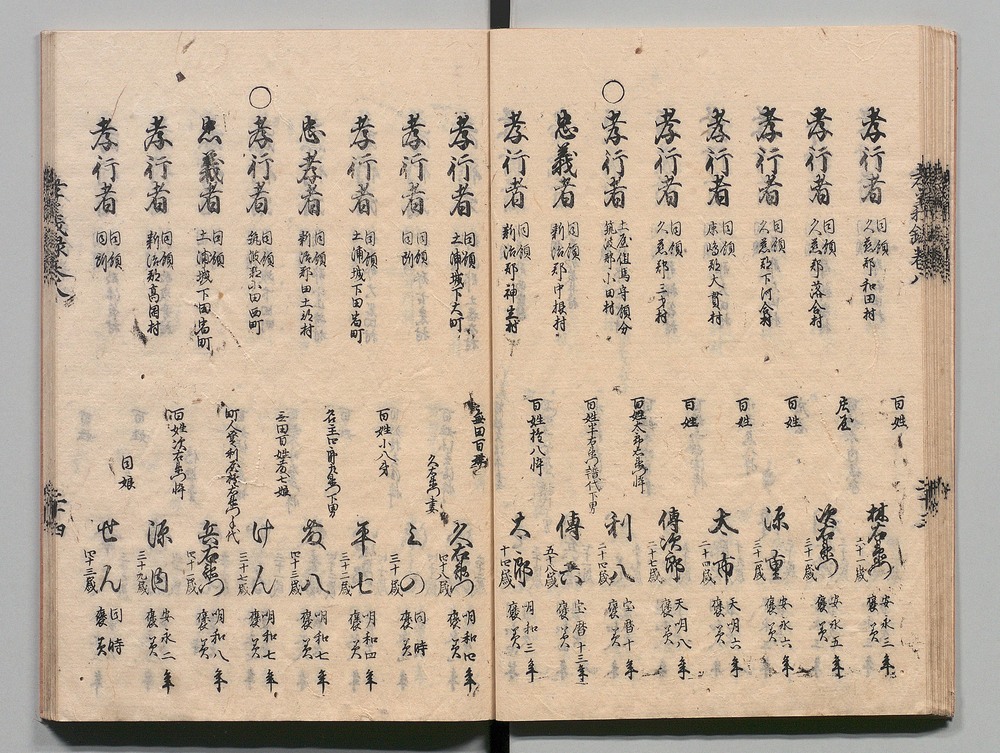 孝行者 同領 久慈郡和田村 百姓 林右衛門 六十一歳 安永三年 褒美
孝行者 同領 久慈郡落合村 庄屋 次右衛門 三十一歳 安永五年 褒美
孝行者 同領 久慈郡下河合村 百姓 源重 三十二歳 安永六年 褒美
孝行者 同領 鹿嶋郡大貫村 百姓 太市 二十四歳 天明六年 褒美
孝行者 同領 久慈郡三才村 百姓 傳次郎 二十七歳 天明八年 褒美
○孝行者 土屋但馬守領分 筑波郡小田村 百姓太郎右衛門忰 利八 二十四歳 宝暦十年 褒美
忠義者 同領 新治郡中根村 百姓半右衛門譜代下男 傳六 五十八歳 宝暦十三年 褒美
孝行者 同領 新治郡神立村 百姓拾八忰 太郎 十四歳 明和三年 褒美
孝行者 同領 土浦城下大町 無田百姓 久右衛門 四十八歳 明和四年 褒美
孝行者 同領 同所 久右衛門妻 三の 三十歳 同時 褒美
孝行者 同領 土浦城下田宿町 百姓小八弟 平七 三十二歳 明和四年 褒美
忠孝者 同領 新治郡田土部村 下男 發八 四十三歳 明和七年 褒美
○孝行者 同領 筑波郡小田西町 娘 けん 三十七歳 明和七年 褒美
忠義者 同領 土浦城下田宿町 手代 兵右衛門 四十一歳 明和八年 褒美
孝行者 同領 新治郡高岡村 百姓次右衛門忰 源内 三十九歳 安永二年 褒美
孝行者 同領 同所 同娘 せん 四十三歳 同時 褒美